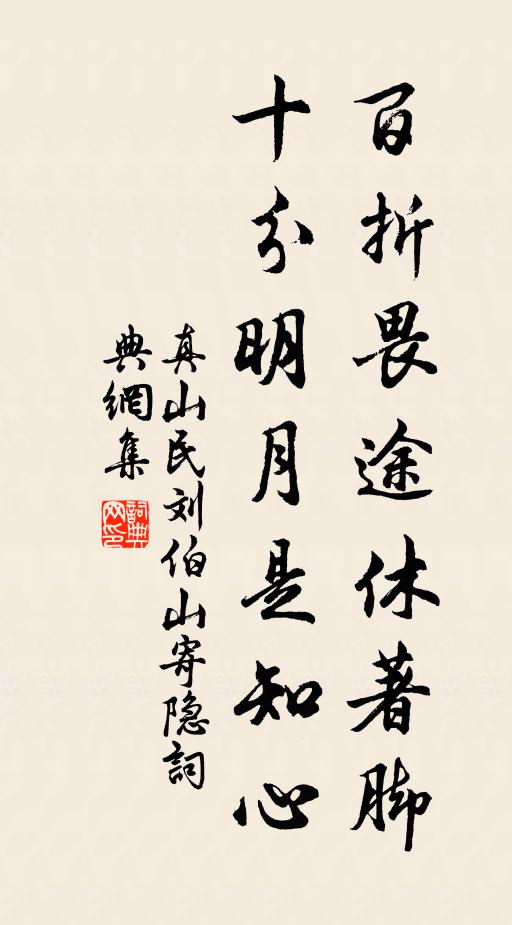 百折畏途休著脚
十分明月是知心
真山民刘伯山寄隐詞
典網集
詞典网印